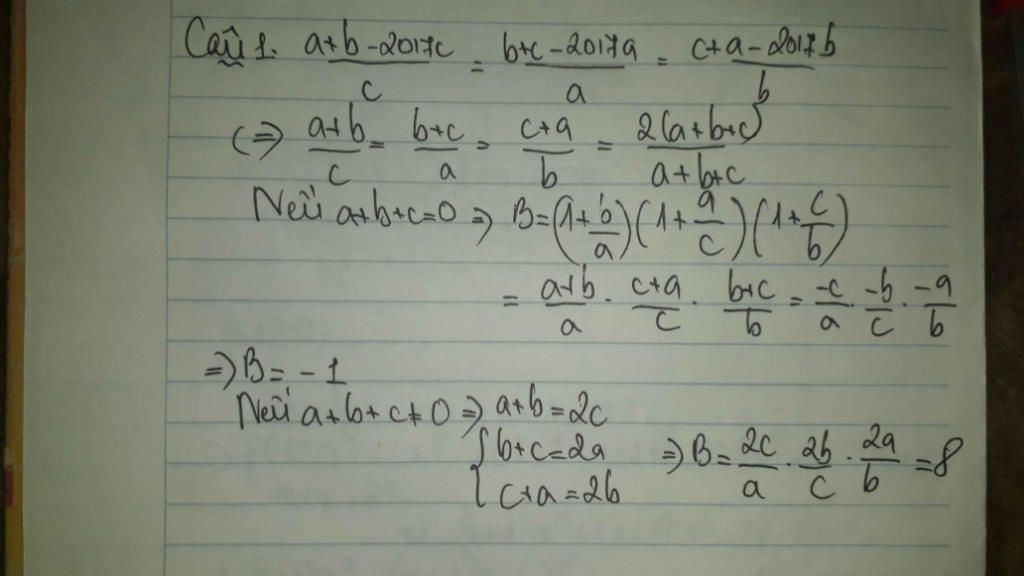 Câu 1. (a+b-2017c)/c = (b+c-2017a)/a = (c+a-2017b)/b
(=) (a+b)/c = (b+c)/a = (c+a)/b = 2(a+b+c)/(a+b+c)
Nếu a+b+c=0 => B=(1+b/a)(1+a/c)(1+c/b)
= (a+b)/a . (c+a)/c . (b+c)/b = -c/a . -b/c . -a/b
=> B = -1
Nếu a+b+c≠0 => a+b=2c
{ b+c=2a => B = 2c/a . 2b/c . 2a/b = 8
c+a=2b